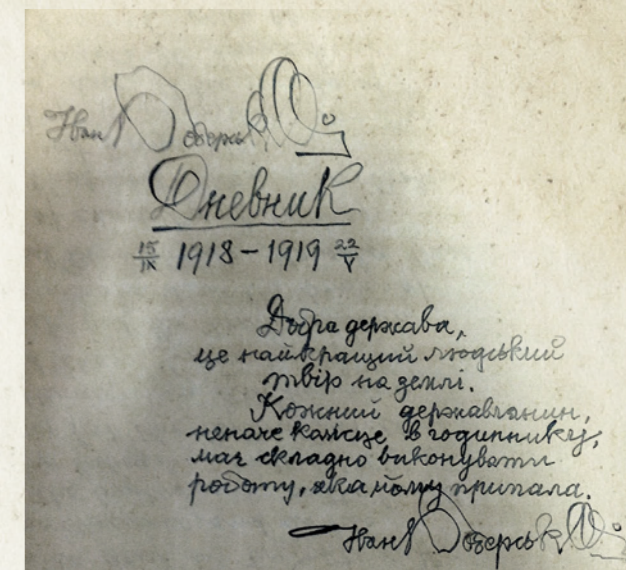 Іван Боберський
Дневник
15/IX 1918 – 1919 22/V
Добра держава,
це найкращий людський
твір на землі.
Кожний державлянин,
неначе колісце в годиннику,
має складно виконувати
роботу, яка йому припала.
Іван Боберський